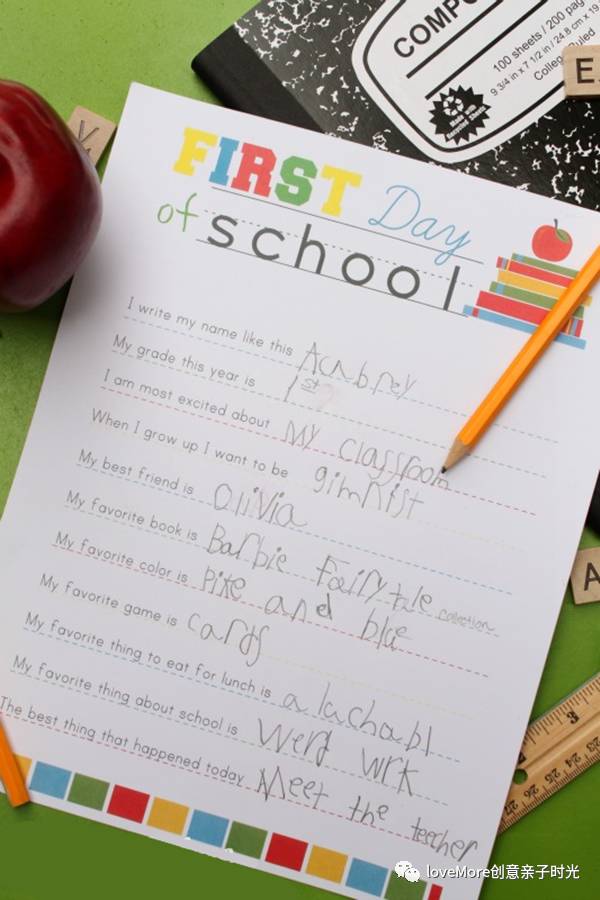 COMPO
100 sheets / 200 pag
9 3/4 in x 7 1/2 in / 24.8 cm x 19
College Ruled
Made with Recycled Sheets
E
FIRST Day
of school
I write my name like this Aubrey
My grade this year is 1st
I am most excited about My classroom
When I grow up I want to be gimnist
My best friend is Olivia
My favorite book is Barbie Fairytale collection
My favorite color is Pike and blue
My favorite game is cards
My favorite thing to eat for lunch is a luchabl
My favorite thing about school is werd wrk
The best thing that happened today Meet the teacher
A
loveMore创意亲子时光